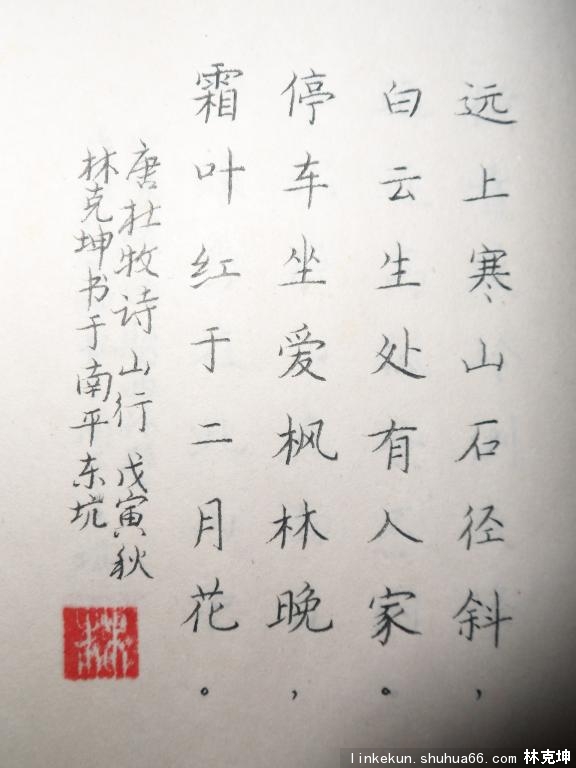 远上寒山石径斜，
白云生处有人家。
停车坐爱枫林晚，
霜叶红于二月花。
唐杜牧诗山行 戊寅秋
林克坤书于南平东坑
林
linkekun.shuhua66.com 林克坤